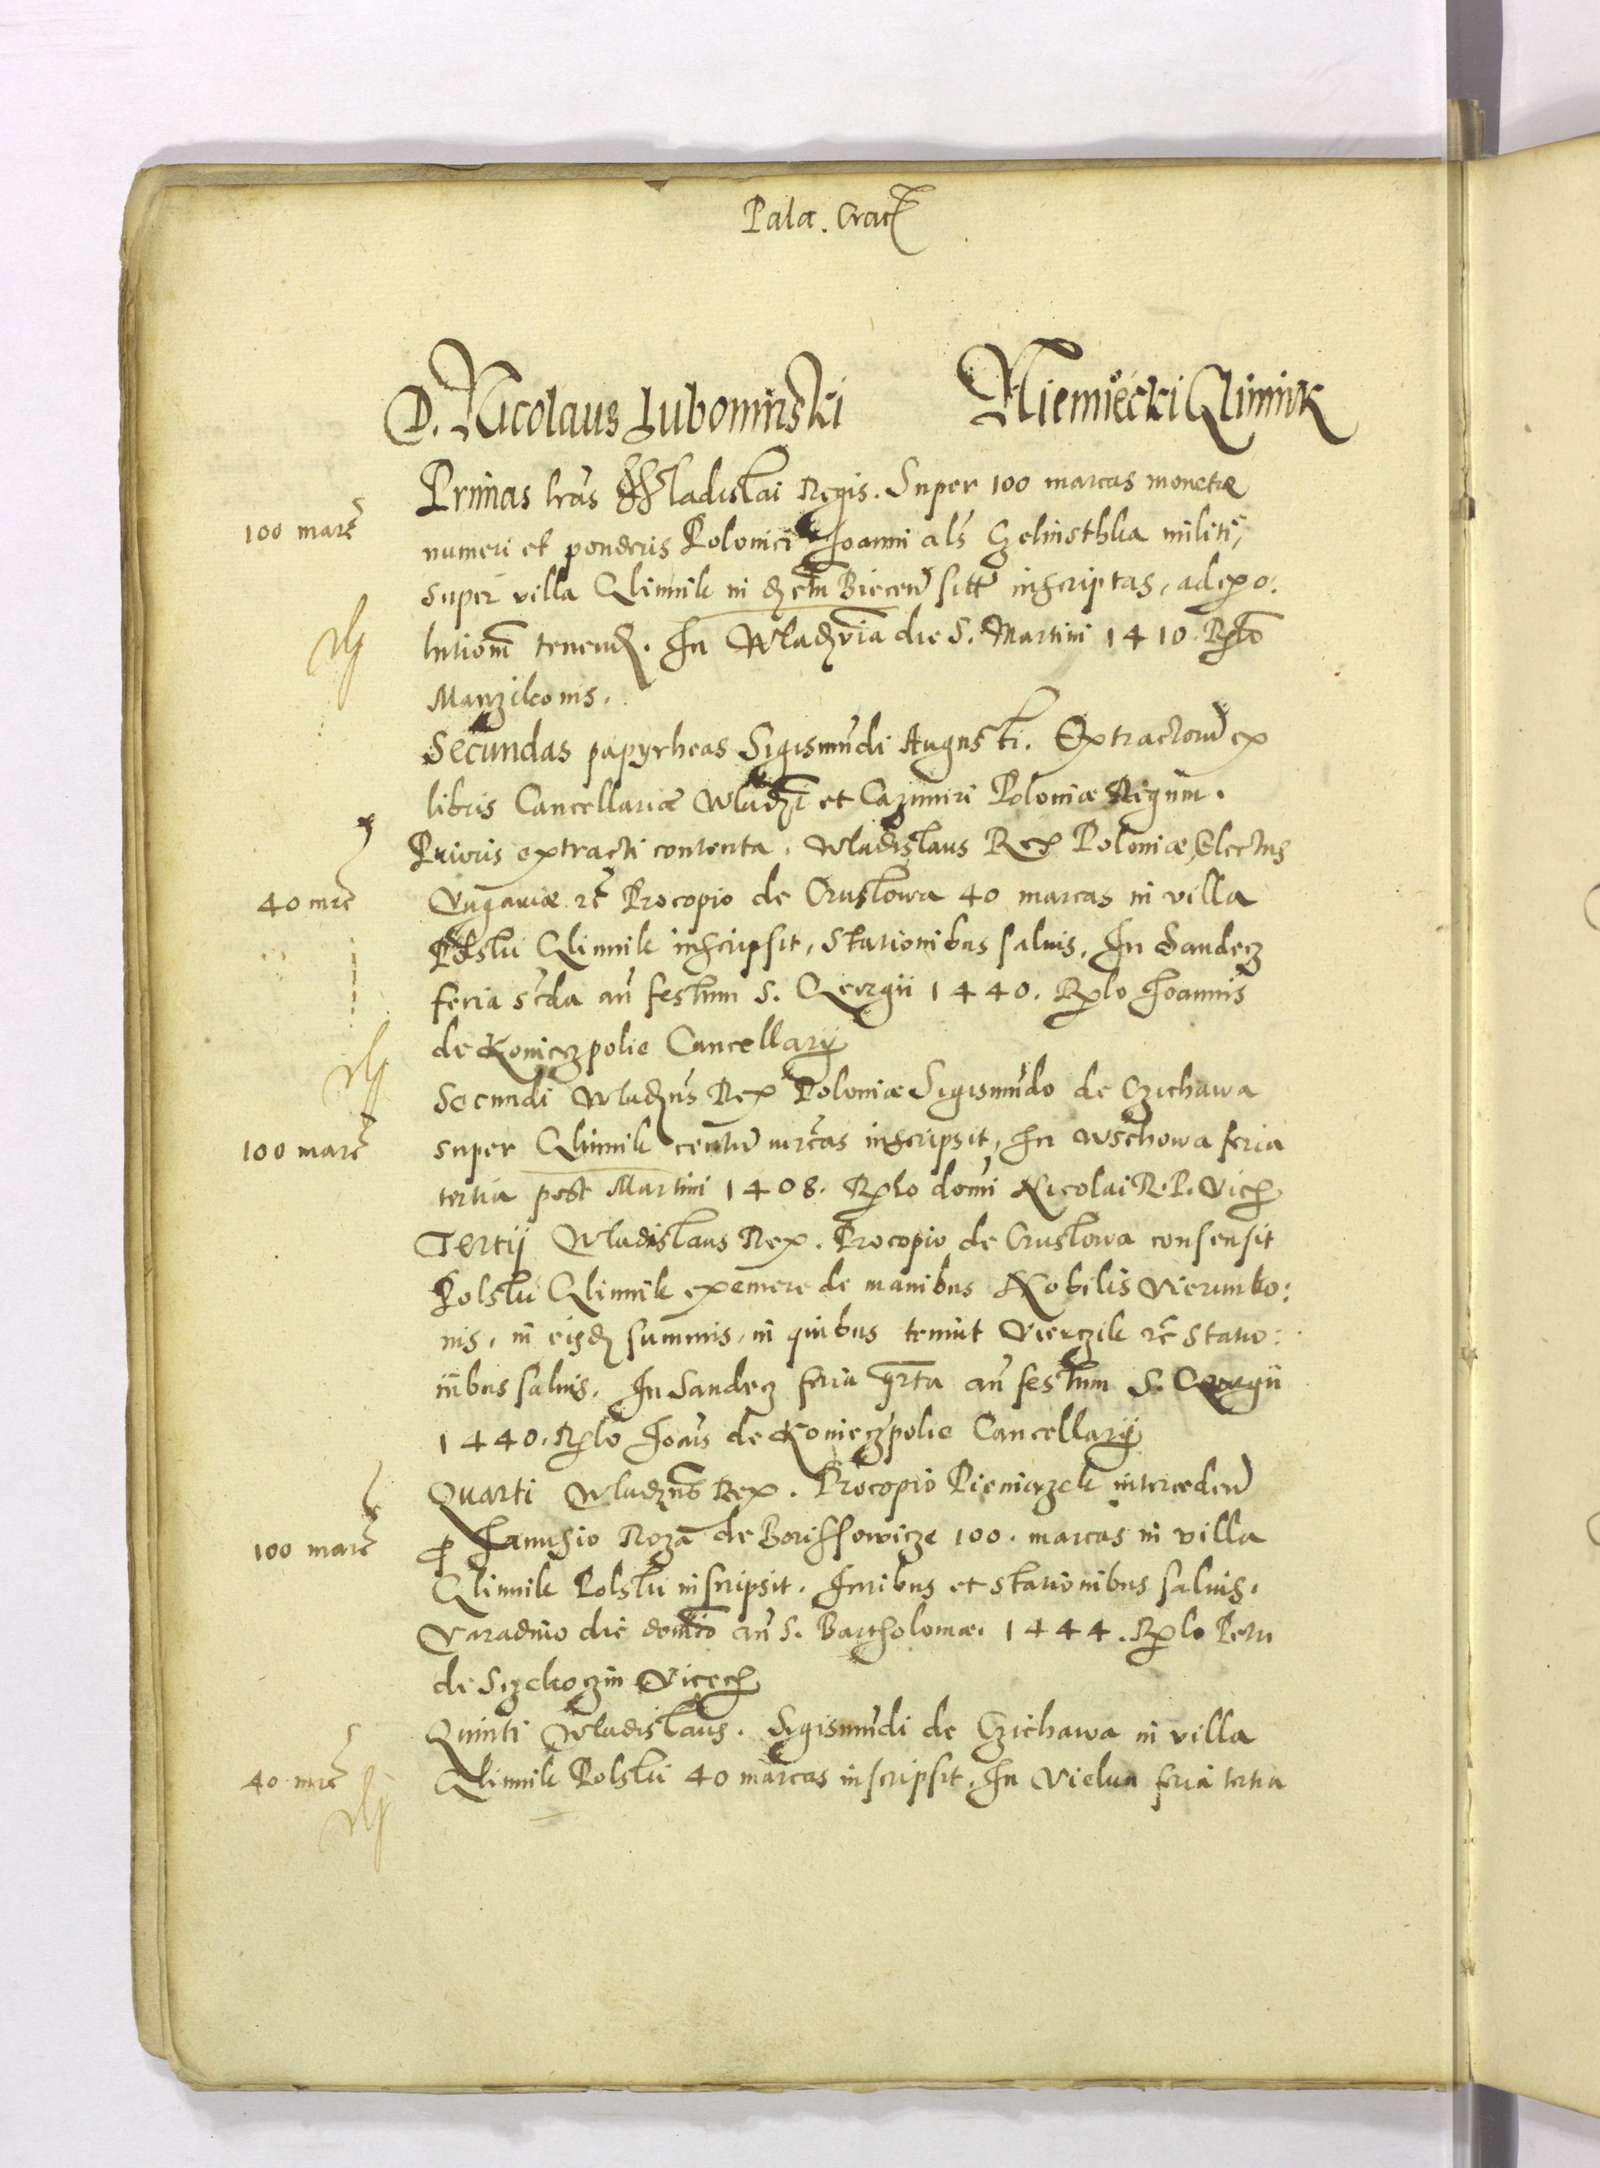 Pala. Crac
D. Nicolaus Lubomirski Niemiecki Glinnik
Primas lras Wladislai Regis. Super 100 marcas monetæ
100 marc
numeri et ponderis Polonici Joanni als militi,
super villa Glinnik in Biecen sitt inscriptas, ad exo:
lutionem tenend. In die S. Martini 1410. Rlo
Secundas papyrheas Sigismudi Augusti. Extractorū ex
libris Cancellariæ Wladzi et Cazimiri Poloniæ Regum.
Prioris extracti contenta. Wladislaus Rex Poloniæ, Electus
40 mrc
Ungariæ rc Procopio de Crustowa 40 marcas in villa
Polstu Glinnik inscripsit, stationibus saluis. In Sandecz
feria scda an festum S. Georgii 1440. Rlo Joannis
de Konieczpolie Cancellarij
Secundi Wladzus Rex Poloniæ Sigismudo de Czichawa
100 marc
super Glinnik centu mrcas inscripsit, In Wschowa feria
tertia post Martini 1408. Rlo domi Nicolai R. P. Vic
Tertij Wladislaus Rex. Procopio de Crustowa consensit
Polstu Glinnik exemere de manibus Nobilis
nis, in eisd summis, in quibus tenuit rc statio:
nibus saluis. In Sandecz feria qrta an festum S. Georgii
1440. Rlo Joais de Konieczpolie Cancellarij
Quarti Wladzus Rex. Procopio Pieniazek
100 marc
p Janusio Roza de 100. marcas in villa
Glinnik Polstu inscripsit. Juribus et stationibus saluis.
Varadino die domco an S. Bartholomæi 1444. Rlo Petri
de Szczekoczin Vicec
Quinti Wladislaus. Sigismudi de Czichawa in villa
40 mrc
Glinnik Polstu 40 marcas inscripsit. In Vielun feria tertia